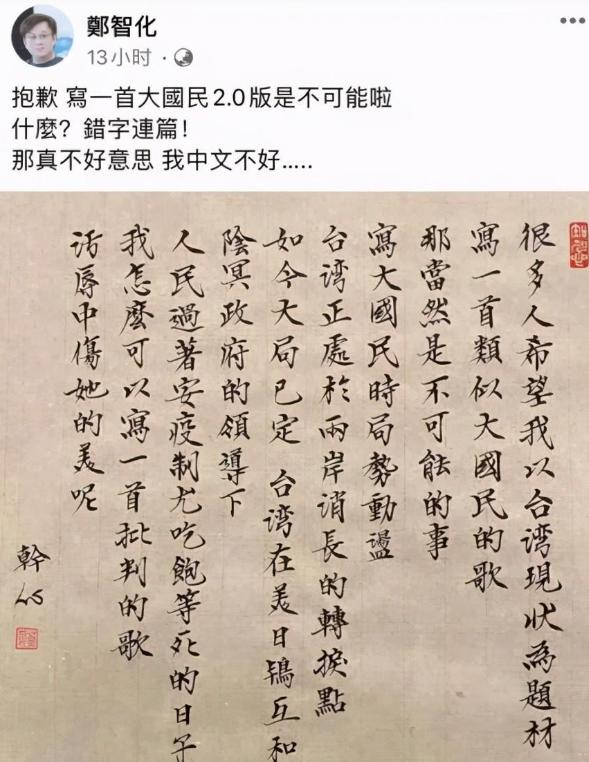 鄭智化
13小时
抱歉 寫一首大國民2.0版是不可能啦
什麼？錯字連篇！
那真不好意思 我中文不好.....
很多人希望我以台湾現狀為題材
寫一首類似大國民的歌
那當然是不可能的事
寫大國民時局勢動盪
台湾正處於兩岸消長的轉捩點
如今大局已定 台湾在美日鴇互和
陰冥政府的領導下
人民過著安疫制尤吃飽等死的日子
我怎麼可以寫一首批判的歌
活辱中傷她的美呢
幹心